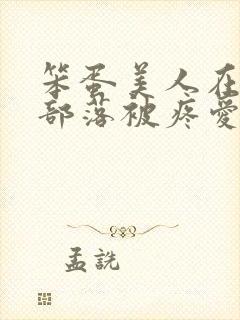 笨蛋美人在
部落被疼愛
孟詵